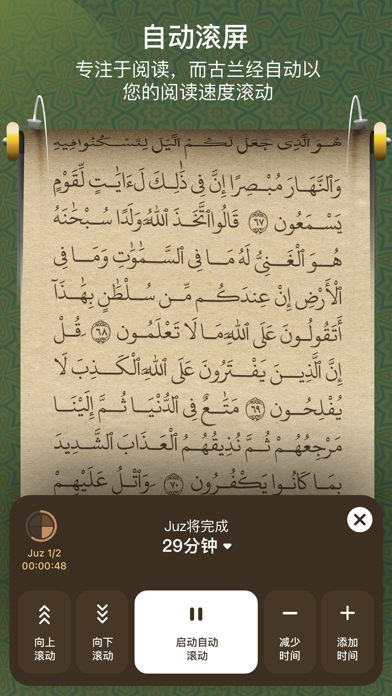 自动滚屏
专注于阅读，而古兰经自动以
您的阅读速度滚动
هُوَ ٱلَّذِى جَعَلَ لَكُمُ ٱلَّيْلَ لِتَسْكُنُوا۟ فِيهِ
وَٱلنَّهَارَ مُبْصِرًا إِنَّ فِى ذَٰلِكَ لَءَايَٰتٍ لِّقَوْمٍ
يَسْمَعُونَ ٦٧ قَالُوا۟ ٱتَّخَذَ ٱللَّهُ وَلَدًا سُبْحَٰنَهُۥ
هُوَ ٱلْغَنِىُّ لَهُۥ مَا فِى ٱلسَّمَٰوَٰتِ وَمَا فِى
ٱلْأَرْضِ إِنْ عِندَكُم مِّن سُلْطَٰنٍۭ بِهَٰذَآ
أَتَقُولُونَ عَلَى ٱللَّهِ مَا لَا تَعْلَمُونَ ٦٨ قُلْ
إِنَّ ٱلَّذِينَ يَفْتَرُونَ عَلَى ٱللَّهِ ٱلْكَذِبَ لَا
يُفْلِحُونَ ٦٩ مَتَٰعٌ فِى ٱلدُّنْيَا ثُمَّ إِلَيْنَا
مَرْجِعُهُمْ ثُمَّ نُذِيقُهُمُ ٱلْعَذَابَ ٱلشَّدِيدَ
بِمَا كَانُوا۟ يَكْفُرُونَ ٧٠ وَٱتْلُ عَلَيْهِمْ
Juz将完成
29分钟
Juz 1/2
00:00:48
向上
滚动
向下
滚动
启动自动
滚动
减少
时间
添加
时间